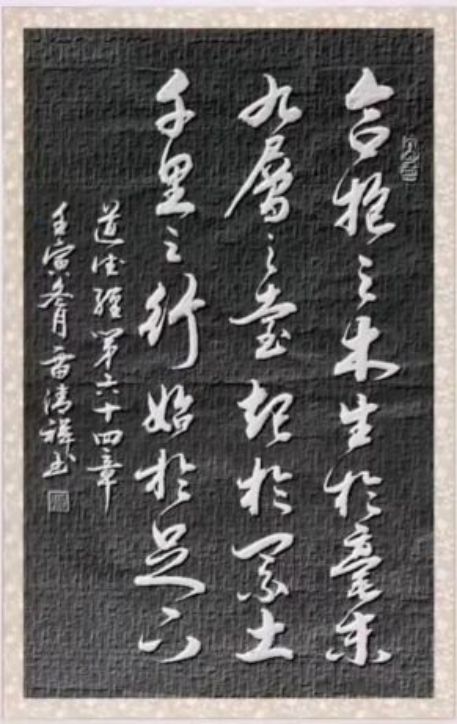 合抱之木生於毫末
九層之臺起於累土
千里之行始於足下
道德經第六十四章
壬寅冬月雷清祥书